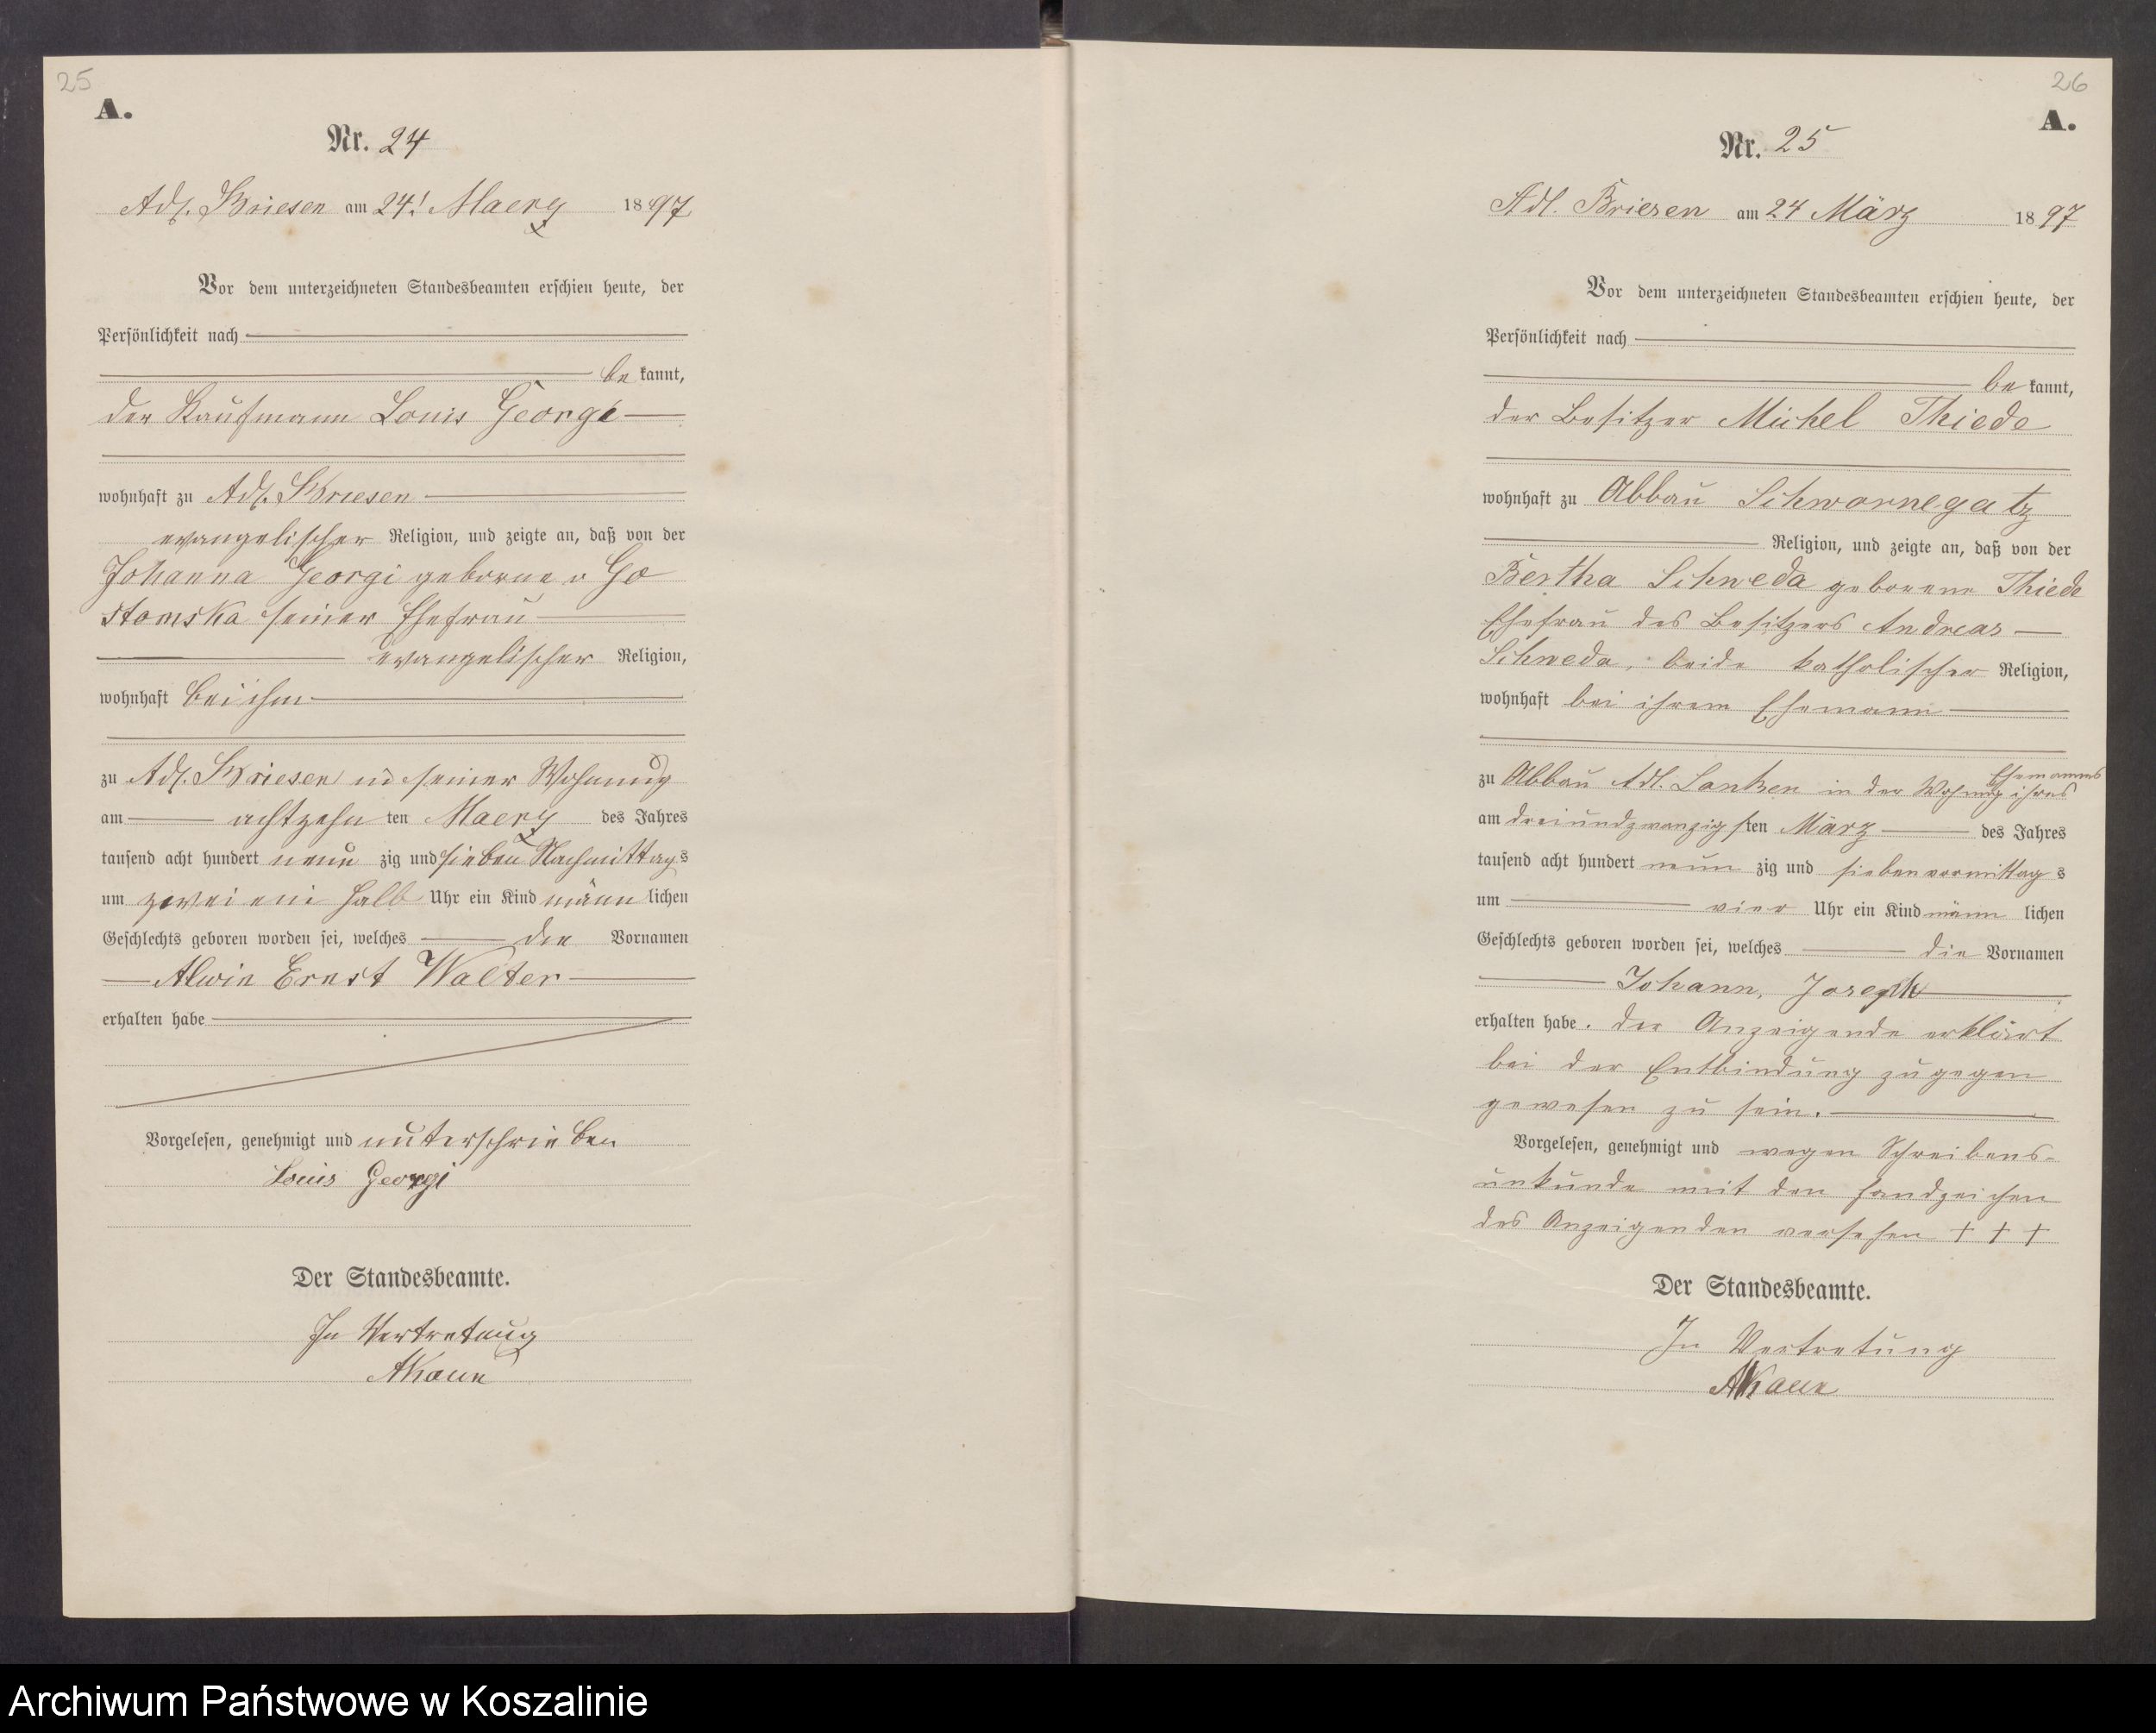 25
A.
Nr. 24
Adl. Briesen am 24! Maerz 1897
Vor dem unterzeichneten Standesbeamten erschien heute, der
Persönlichkeit nach
be kannt,
der Kaufmann Louis Georgi
wohnhaft zu Adl. Briesen
evangelischer Religion, und zeigte an, daß von der
Johanna Georgi geborne Go
stomska seiner Ehefrau
evangelischer Religion,
wohnhaft bei ihm
zu Adl. Briesen in seiner Wohnung
am achtzehn ten Maerz des Jahres
tausend acht hundert neun zig und sieben Nachmittags
um zwei ein halb Uhr ein Kind männ lichen
Geschlechts geboren worden sei, welches die Vornamen
Alwin Ernst Walter
erhalten habe
Vorgelesen, genehmigt und unterschrieben
Louis Georgi
Der Standesbeamte.
In Vertretung
26
A.
Nr. 25
Adl. Briesen am 24 März 1897
Vor dem unterzeichneten Standesbeamten erschien heute, der
Persönlichkeit nach
be kannt,
der Besitzer Michel Thiede
wohnhaft zu Abbau Schwornegatz
Religion, und zeigte an, daß von der
Bertha Schweda geborene Thiede
Ehefrau des Besitzers Andreas
Schweda, beide katholischer Religion,
wohnhaft bei ihrem Ehemann
zu Abbau Adl. in der Wohnung ihres Ehemannes
am dreiundzwanzigsten März des Jahres
tausend acht hundert neun zig und sieben vormittags
um vier Uhr ein Kind männ lichen
Geschlechts geboren worden sei, welches die Vornamen
Johann, Joseph
erhalten habe. Der Anzeigende erklärt
bei der Entbindung zugegen
gewesen zu sein.
Vorgelesen, genehmigt und wegen Schreibens-
unkunde mit den Handzeichen
des Anzeigenden versehen + + +
Der Standesbeamte.
In Vertretung
Archiwum Państwowe w Koszalinie